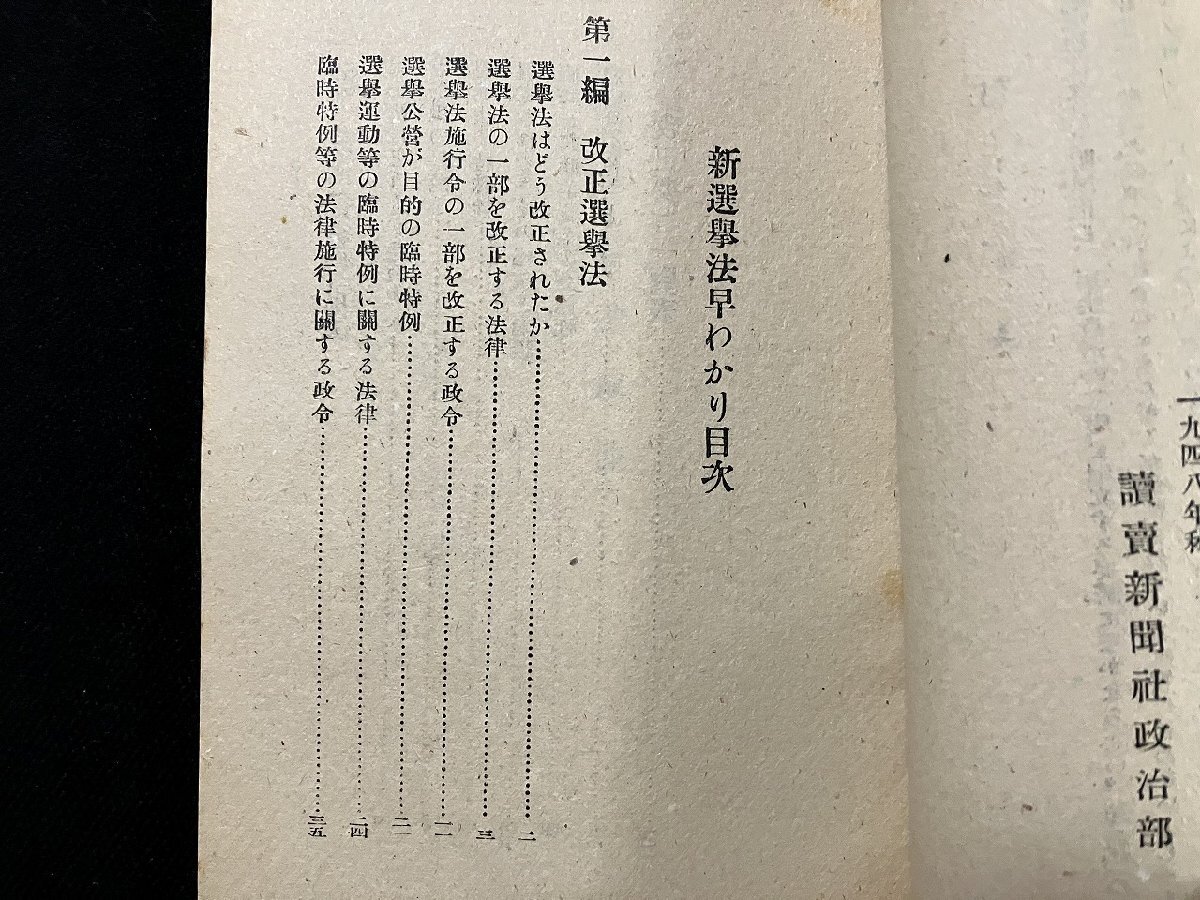 一九四八年秋
讀賣新聞社政治部
新選擧法早わかり目次
第一編 改正選擧法
選擧法はどう改正されたか
選擧法の一部を改正する法律……三
選擧法施行令の一部を改正する政令
選擧公營が目的の臨時特例
選擧運動等の臨時特例に關する法律……二四
臨時特例等の法律施行に關する政令……三五